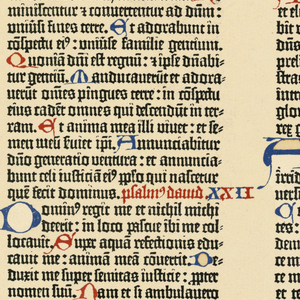 miniscentur ⁊ convertentur ad dn̄m:
univ̄si fines terre. Et adorabunt in
cōspectu ei⁹: univ̄se familie gentium.
Quoniā dn̄i est regnū: ⁊ ip̄e dn̄abi-
tur gentiū. Manducaverūt et adora-
verūt om̄es pingues terre: in cōspectu
eius cadēt omnes qui descendūt in ter-
ram. Et anima mea illi vivet: et se-
men meū serviet ip̄i. Annunciabitur
dn̄o generatio ventura: et annuncia-
bunt celi iusticiā ei⁹ pp̄lo qui nascetur
quē fecit dominus. psalm⁹ david XXII
Domin⁹ regit me et nichil michi
deerit: in loco pascue ibi me col-
locavit. Super aquā refectionis edu-
cavit me: animā meā cōvertit. De-
duxit me super semitas iusticie: ꝓpter
nomen suū. Nam et si ambulavero